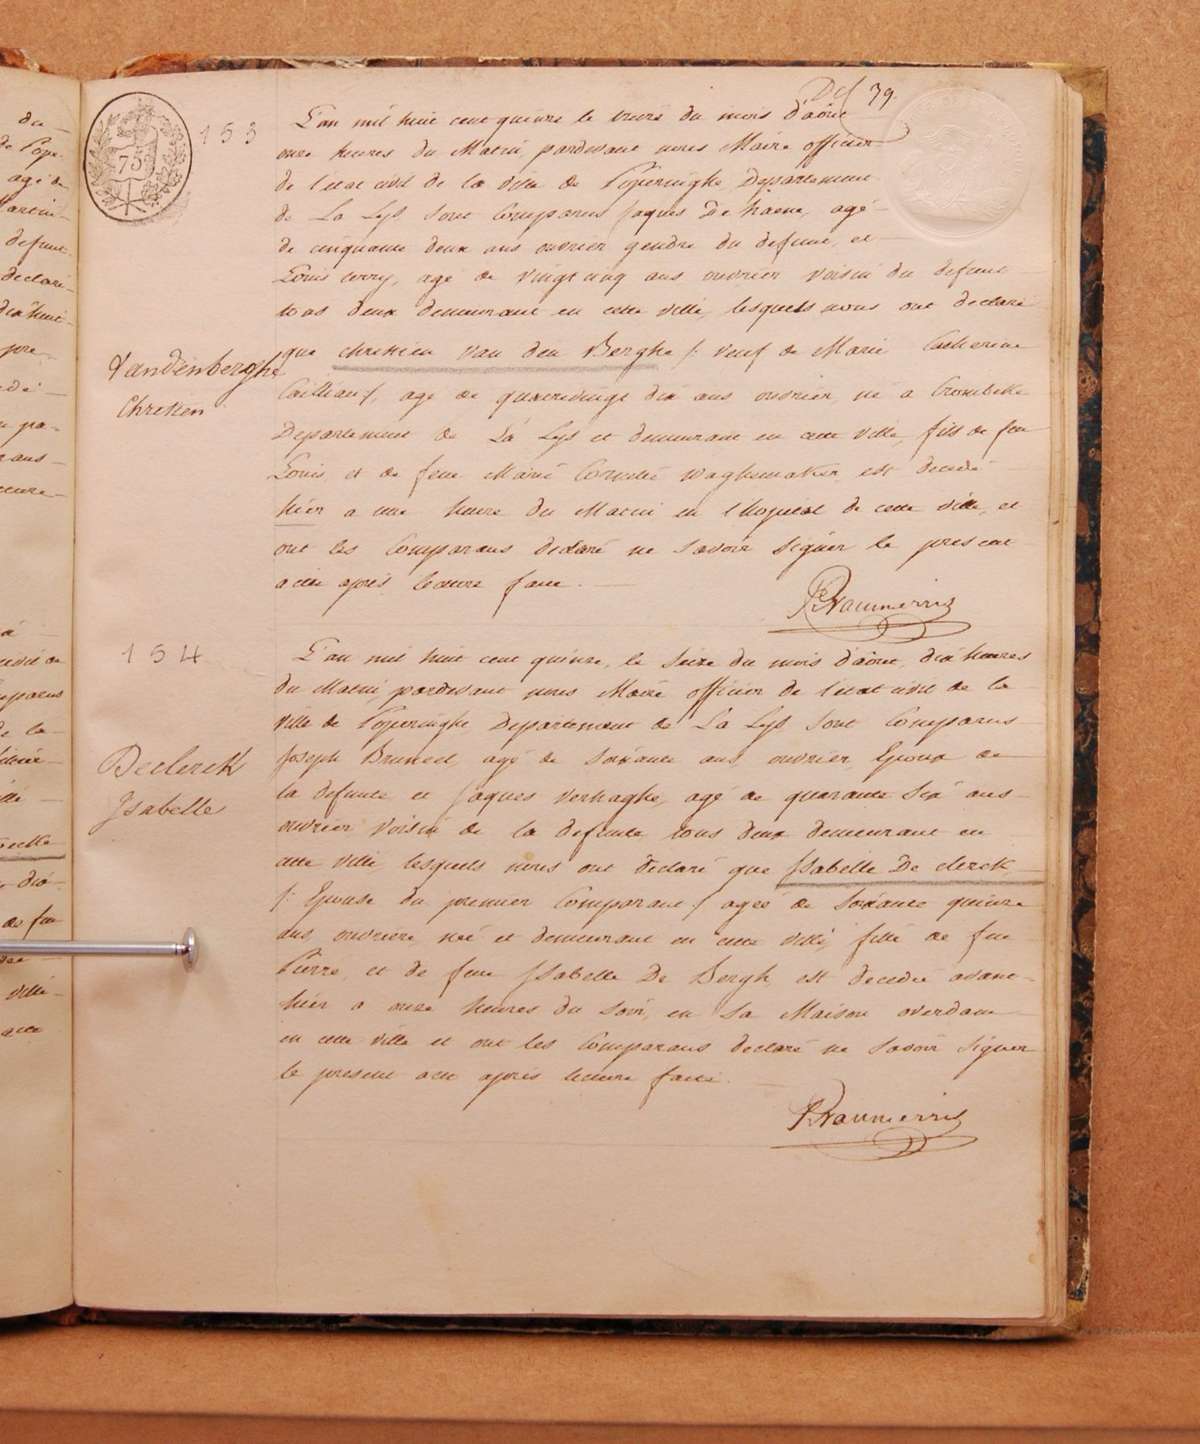 Dcf 39.
75
153
L'an mil huit cent quinze le treize du mois d'août
onze heures du Matin, pardevant nous Maire officier
de l'etat civil de la ville de Poperinghe, Departement
de La Lys sont Comparus Jaques De haene, agé
de cinquante deux ans ouvrier gendre du defunt, et
Louis agé de vingt cinq ans ouvrier voisin du defunt
tous deux demeurant en cette ville, lesquels nous ont declaré
Vandenberghe
Chretien
que chretien van den Berghe /: veuf de Marie Catherine
Cailliau /, agé de quatrevingt dix ans ouvrier, né a Crombeke
Departement de La Lys et demeurant en cette ville, fils de feu
Louis, et de feue Marie Cornelie waghemaker est decedé
hier a une heure du Matin en l'hopital de cette ville, et
ont les Comparans declaré ne savoir signer le present
acte après lecture faite.
154
L'an mil huit cent quinze, le seize du mois d'août, dix heures
du Matin pardevant nous Maire officier de l'etat civil de la
ville de Poperinghe Departement de La Lys sont Comparus
Declerck
Jsabelle
Joseph Bruneel, agé de soixante ans, ouvrier, Epoux de
la defunte et Jaques verhaghe, agé de quarante six ans
ouvrier voisin de la defunte tous deux demeurant en
cette ville lesquels nous ont declaré que Jsabelle De clerck
/: Epouse du premier Comparant / ageé de soixante quinze
ans, ouvriere, neé et demeurant en cette ville, fille de feu
Pierre, et de feue Jsabelle De Bergh, est decedeé avant
hier a onze heures du soir, en sa Maison overdam
en cette ville et ont les Comparans declaré ne savoir signer
le present acte après lecture faite.